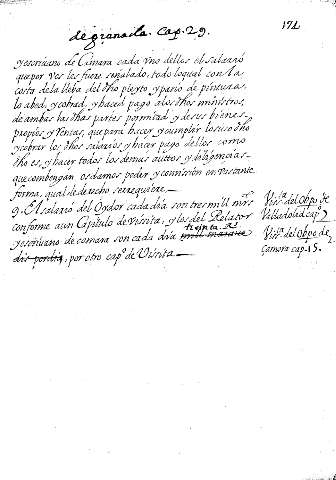 de granada. Cap. 29.
171
y escriuano de Camara cada vno dellos el salario
que por vos les fuere señalado, todo lo qual con la
costa de la lleba del dho pleyto, y pario de pinturas
lo abed, y cobrad, y haced pago a los dhos ministros,
de ambas las dhas partes por mitad y de sus bienes
propios, y rentas, que para hacer, y cumplir lo suso dho
y cobrar los dhos salarios, y hacer pago dellos como
dho es, y hacer todos los demas auttos, y diligencias
que combengan os damos poder, y comission en vastante
forma, qual de derecho se requiere.
9. El salario del Oydor cada dia son tres mill mrs.
conforme a un Capitulo de vissita, y los del Relator
y escriuano de camara son cada dia mill marave
treinta Rs
dis por dia, por otro capº de Vissita
Vissta del Obpo de
Valladolid capº 7
Vissta del Obpo de
Çamora cap. 15.